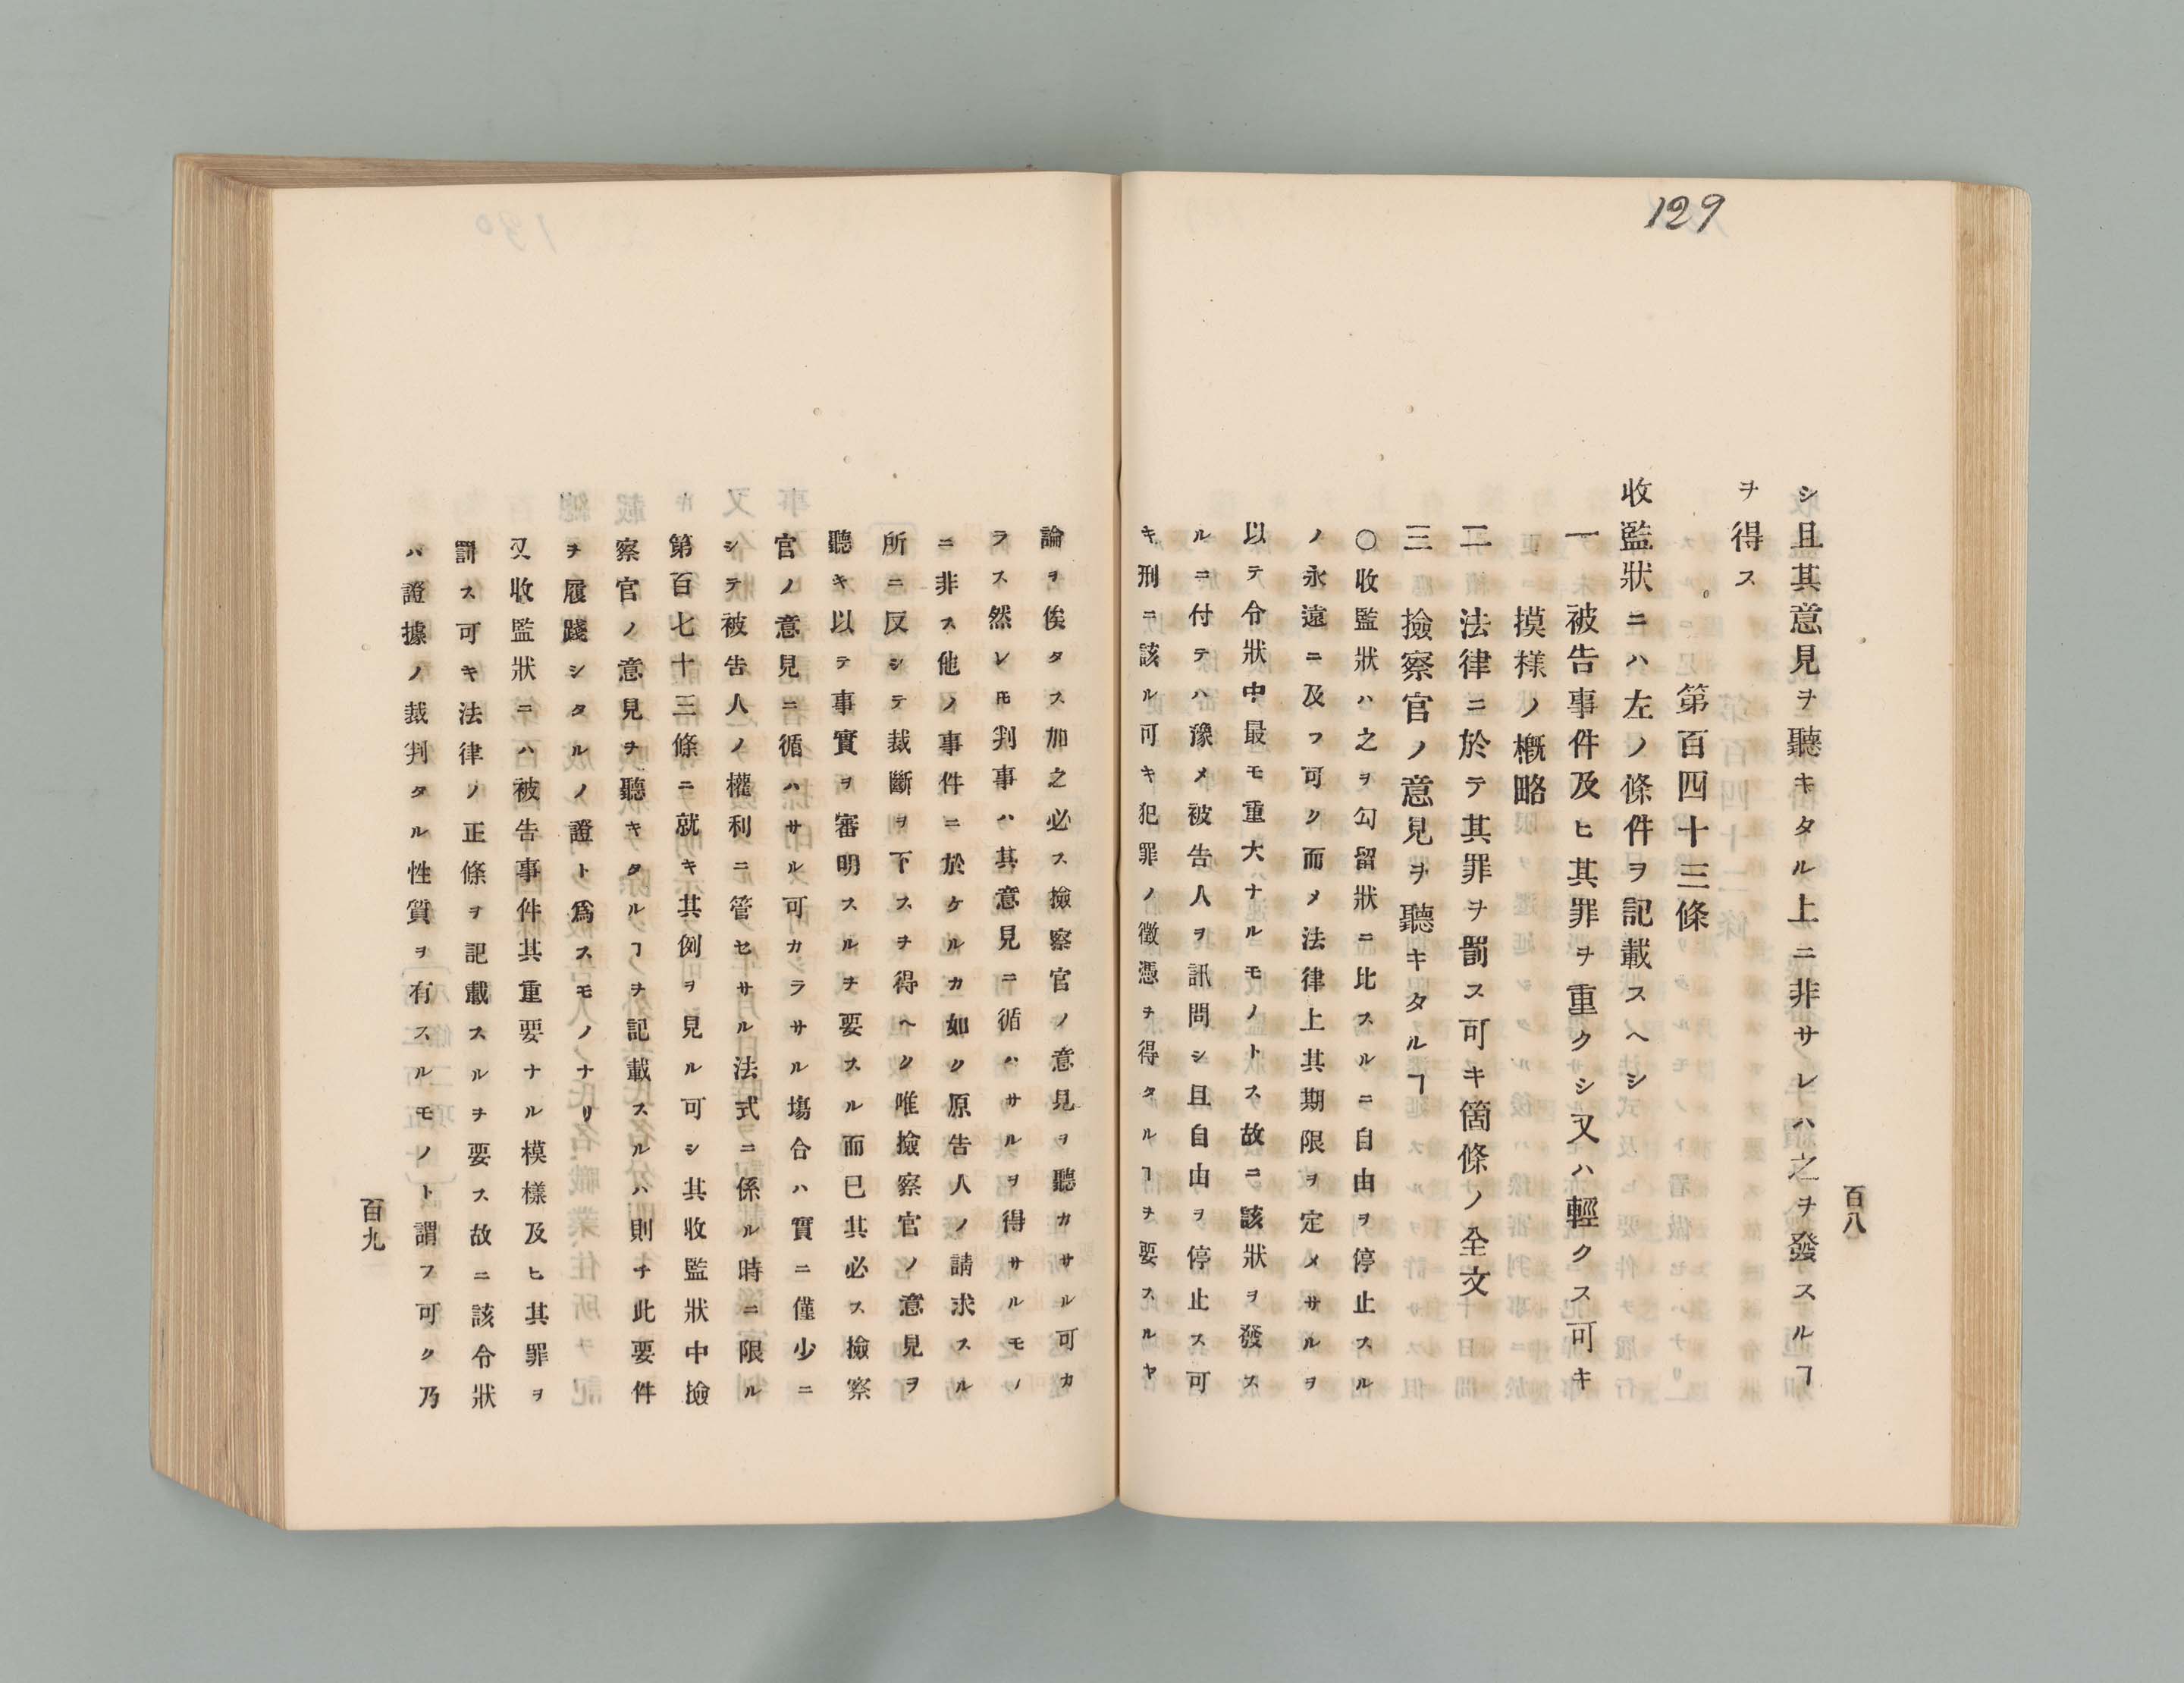 129
百八
シ且其意見ヲ聽キタル上ニ非サレハ之ヲ發スルヿ
ヲ得ス
第百四十三條
收監狀ニハ左ノ條件ヲ記載スヘシ
一 被告事件及ヒ其罪ヲ重クシ又ハ輕クス可キ
摸樣ノ概略
二 法律ニ於テ其罪ヲ罰ス可キ箇條ノ全文
三 撿察官ノ意見ヲ聽キタルヿ
○收監狀ハ之ヲ勾留狀ニ比スルニ自由ヲ停止スル
ノ永遠ニ及フ可ク而メ法律上其期限ヲ定メサルヲ
以テ令狀中最モ重大ナルモノトス故ニ該狀ヲ發ス
ルニ付テハ豫メ被告人ヲ訊問シ且自由ヲ停止ス可
キ刑ニ該ル可キ犯罪ノ徵憑ヲ得タルヿヲ要スルヤ
論ヲ俟タス加之必ス撿察官ノ意見ヲ聽カサル可カ
ラス然レ𪜈判事ハ其意見ニ循ハサルヲ得サルモノ
ニ非ス他ノ事件ニ於ケルカ如ク原告人ノ請求スル
所ニ反シテ裁斷ヲ下スヲ得ヘク唯撿察官ノ意見ヲ
聽キ以テ事實ヲ審明スルヲ要スル而已其必ス撿察
官ノ意見ニ循ハサル可カラサル塲合ハ實ニ僅少ニ
シテ被告人ノ權利ニ管セサル法式ニ係ル時ニ限ル
第百七十三條ニ就キ其例ヲ見ル可シ其收監狀中撿
察官ノ意見ヲ聽キタルヿヲ記載スルハ則チ此要件
ヲ履踐シタルノ證ト爲スモノナリ
又收監狀ニハ被告事件其重要ナル模樣及ヒ其罪ヲ
罰ス可キ法律ノ正條ヲ記載スルヲ要ス故ニ該令狀
ハ證據ノ裁判タル性質ヲ有スルモノト謂フ可ク乃
百九